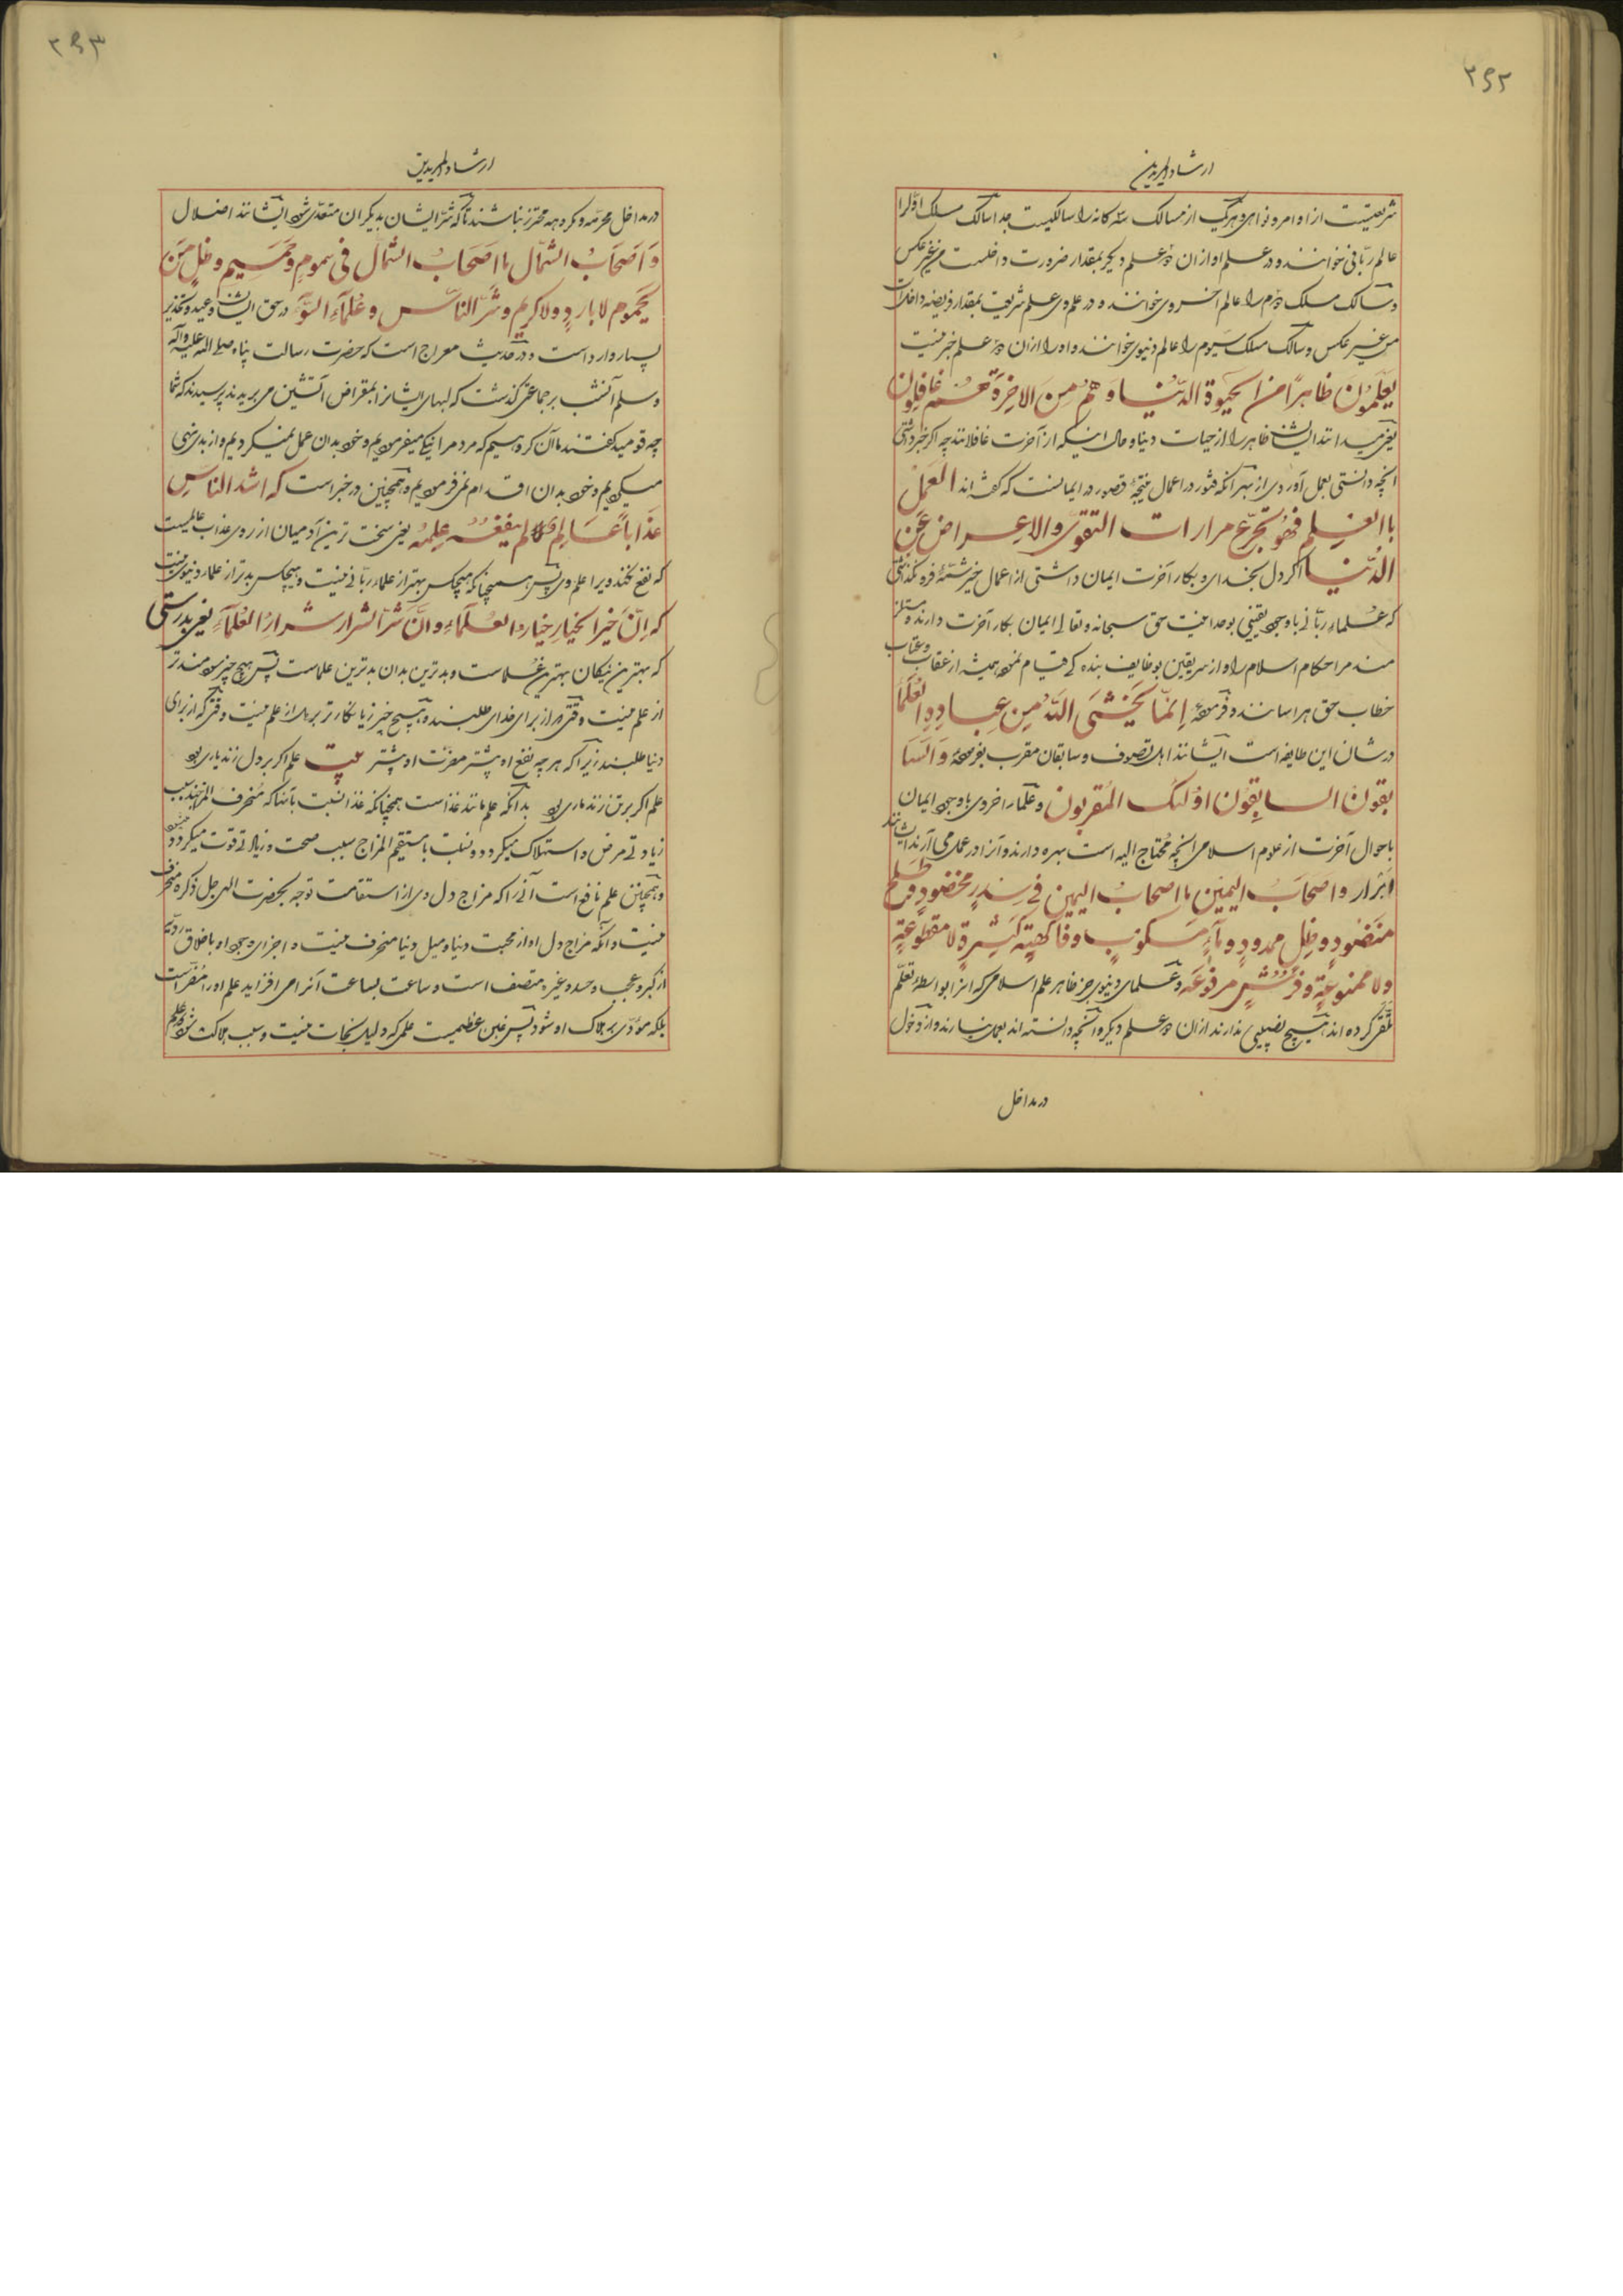 ۲۶۲
ارشاد المریدین
شریعتست از اوامر و نواهی و هر یک از مسالک سه کانه را سالکیست جدا سالک مسلک اول را
عالم ربانی خوانند و در علم او از آن دو علم دیکر بمقدار ضرورت داخلست من غیر عکس
و سالک مسلک دوم را عالم اخروی خوانند و در علم وی علم شریعت بمقدار فریضه داخلست
من غیر عکس و سالک مسلک سیوم را عالم دنیوی خوانند و او را از آن دو علم خبر نیست
یَعلَمُونَ ظاهِرًا مِنَ الحَیوةِ الدُّنیا وَ هُم عَنِ الاخِرَةِ هُم غافِلُون
یعنی میدانند ایشان ظاهر را از حیات دنیا و حال اینکه از آخرت غافلانند چه اکر خبر داشتی
انچه دانستی بعمل آوردی از بهر آنکه فتور در اعمال نتیجهٔ قصور در ایمانست که کفته اند العَمَلُ
باالعِلم فهُو تجَرّع مرارات التقوی والاعراض عَن
الدُّنیا اکر دل بخدای و بکار آخرت ایمان داشتی از اعمال خیر شمهٔ فرو نکذاشتی
که علماء ربانی با وجود یقینی بوحدانیت حق سبحانه و تعالی ایمان بکار آخرت دارند و ملتزم
مند مر احکام اسلام را و از سر یقین بوظایف بنده کی قیام نموده همیشه از عقاب و عتاب
خطاب حق هراسانند و فرموده اِنمّا یَخشَی اللهَ مِن عِبادِهِ العُلَمآ
در شان این طایفه است ایشانند اهل تصوف و سابقان مقرب بفرموده وَ السّا
بقونَ السابِقوُن اوُلئک المُقربون و علماء اخروی با وجود ایمان
باحوال آخرت از علوم اسلامی انچه محتاج الیه است بهره دارند و آنرا در عمل می آرند ایشانند
ابرار و اصحَابُ الیمین ما اصحابُ الیمین فی سِدرٍ مخضُودٍ و طلحٍ
منضُودٍ و ظِلٍ ممدودٍ و مآءٍ مَسکوُبٍ و فاکهةٍ کثیرةٍ لا مقطوُعَةٍ
ولا ممنوعَةٍ و فُرُشٍ مرفوُعَة و علمای دنیوی جز ظاهر علم اسلامی که انرا بواسطهٔ تعلّم
تلقی کرده اند هیچ نصیبی ندارند از آن دو علم دیکر و آنچه دانسته اند بعمل نیارند و از دخول
در مداخل
۲۶۳
ارشاد المریدین
در مداخل محرمه و مکروهه محترز نباشند تا آنکه شر ایشان بدیکران متعدی شود ایشانند اضلال
وَ اَصحَابُ الشّمال ما اصَحابُ الشمال فی سمُومٍ و حَمیمٍ و ظلٍ مِن
یَحموُم لا باردٍ ولا کریم و شَرّ الناّس و عُلمآء السّوَء در حق ایشان وعید و تحذیر
بسیار وارد است و در حدیث معراج است که حضرت رسالت پناه صلی الله علیه وآله
وسلم آنشب بر جماعتی کذشت که لبهای ایشانرا بمقراض آتشین می بریدند پرسیدند که شما
چه قومید کفتند ما آن کروهیم که مردمرا نیکی میفرمودیم و خود بدان عمل نمیکردیم و از بدی نهی
میکردیم و خود بدان اقدام می نمودیم و همچنین در خبر است که اشد الناسِ
عَذاباً عَالِمٌ لم ینفَعه عِلمُهُ یعنی سخت ترین آدمیان از روی عذاب عالمیست
که نفع نکند ویرا علم وی پس همچنانکه هیچکس بهتر از علماء ربانی نیست و هیچکس بدتر از علماء دنیوی نیست
که اِنّ خَیرَ الخیارِ خیارُ العُلَمآءِ و اِنَّ شَرّ الشّرارِ شِرارُ العُلمآءِ یعنی بدرستی
که بهترین نیکان بهترین علماست و بدترین بدان بدترین علماست پس هیچ چیز سودمندتر
از علم نیست وقتی که از برای خدای طلبند و هیچ چیز زیانکارتر از علم نیست وقتی که از برای
دنیا طلبند زیرا که هر چه نفع او بیشتر مضرّت او بیشتر بیت علم اکر بر دل زند یاری بود
علم اکر بر تن زند ماری بود بدانکه علم مانند غذاست همچنانکه غذا نسبت بآنها که منحرف المزاجند سبب
زیادتی مرض و استهلاک میکردد و نسبت با مستقیم المزاج سبب صحت و زیادتی قوت میکردد
و همچنین علم نافع است آنرا که مزاج دل وی از استقامت توجه بحضرت الهی جل ذکره منحرف
نیست و آنکه مزاج دل او از محبت دنیا و میل دنیا منحرف نیست و اجزای وجود او باخلاق ردیّه
از کبر و عجب و حسد و غیره متصف است و ساعت بساعت آنرا می افزاید علم او را مضرّ است
بلکه مؤدی بهلاک او شود پس غبن عظیمیست علمی که دلیل نجات نیست و سبب هلاکت شود و علم